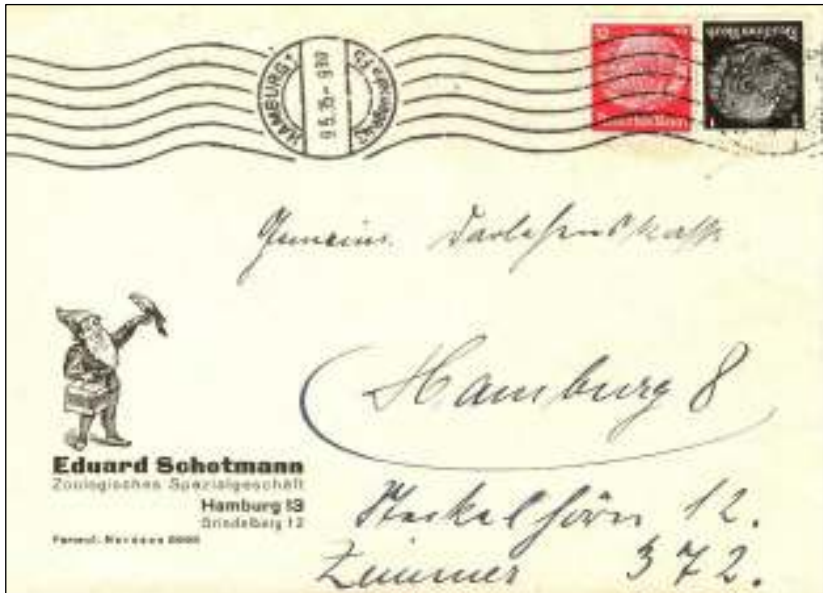 HAMBURG 1
9.5.35-9
Deutsches Reich
Gemeinn. Darlehenskasse
Hamburg 8
Steckelhörn 12.
Zimmer 372.
Eduard Schotmann
Zoologisches Spezialgeschäft
Hamburg 13
Grindelberg 12
Fernspr. Nordsee